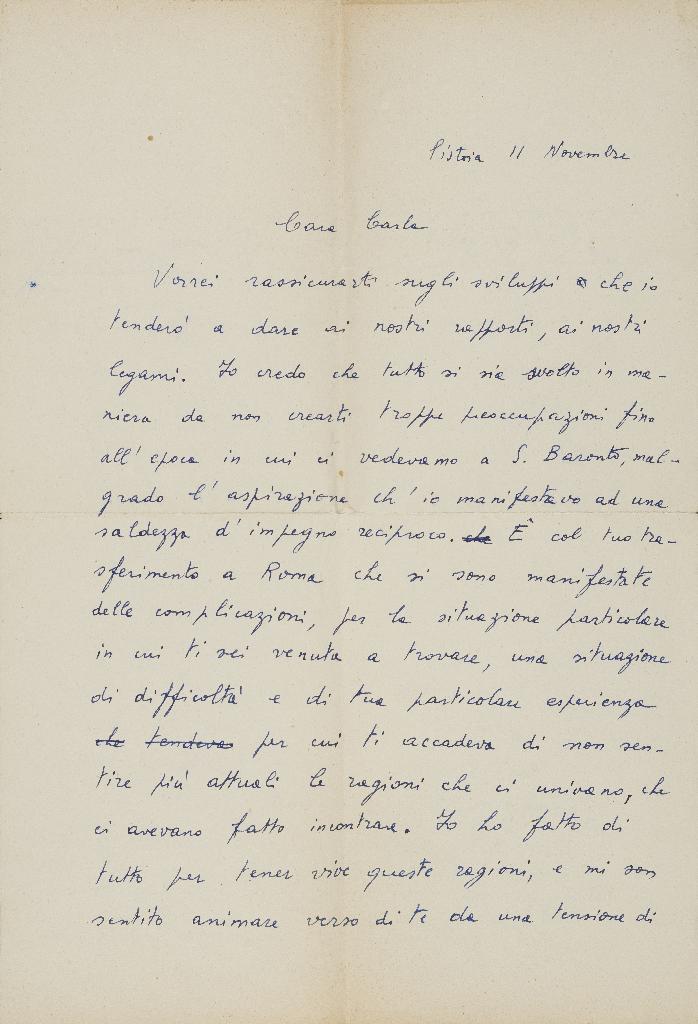 Pistoia 11 Novembre
Cara Carla
Vorrei rassicurarti sugli sviluppi che io
tenderó a dare ai nostri rapporti, ai nostri
legami. Io credo che tutto si sia svolto in ma-
niera da non crearti troppe preoccupazioni fino
all'epoca in cui ci vedevamo a S. Baronto, mal-
grado l'aspirazione ch'io manifestavo ad una
saldezza d'impegno reciproco. che È col tuo tra-
sferimento a Roma che si sono manifestate
delle complicazioni, per la situazione particolare
in cui ti sei venuta a trovare, una situazione
di difficoltà e di tua particolare esperienza
che tendeva per cui ti accadeva di non sen-
tire piú attuali le ragioni che ci univano, che
ci avevano fatto incontrare. Io ho fatto di
tutto per tener vive queste ragioni, e mi son
sentito animare verso di te da una tensione di